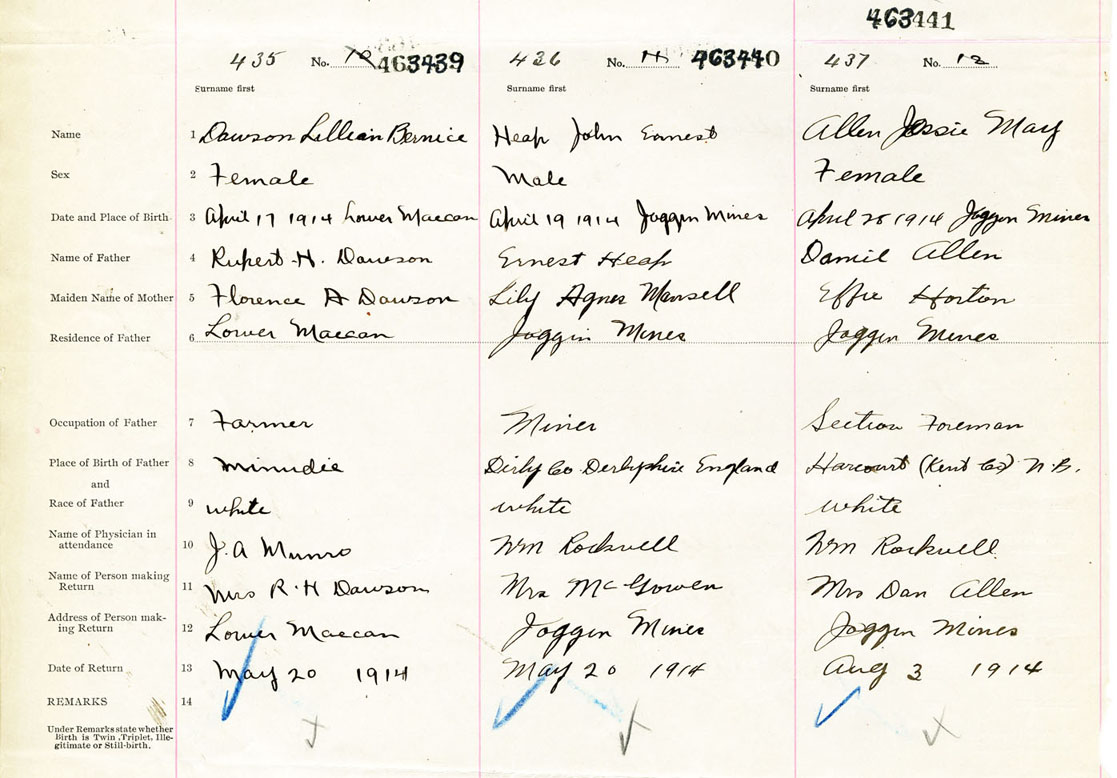 463441
435 No. 463439 436 No. 11 463440 437 No. 12
Surname first Surname first Surname first
Name 1 Dawson Lillian Bernice Heap John Ernest Allen Jessie May
Sex 2 Female Male Female
Date and Place of Birth 3 April 17 1914 Lower Maccan April 19 1914 Joggin Mines April 28 1914 Joggin Mines
Name of Father 4 Rupert H. Dawson Ernest Heap Daniel Allen
Maiden Name of Mother 5 Florence A Dawson Lily Agnes Mansell Effie Horton
Residence of Father 6 Lower Maccan Joggin Mines Joggin Mines
Occupation of Father 7 Farmer Miner Section Foreman
Place of Birth of Father 8 Minudie Co. Derbyshire England Harcourt (Kent Co) N.B.
and
Race of Father 9 white white white
Name of Physician in
attendance 10 J. A Munro Wm Rockwell Wm Rockwell
Name of Person making
Return 11 Mrs R. H Dawson Mrs McGowen Mrs Dan Allen
Address of Person mak-
ing Return 12 Lower Maccan Joggin Mines Joggin Mines
Date of Return 13 May 20 1914 May 20 1914 Aug 3 1914
REMARKS 14
Under Remarks state whether
Birth is Twin, Triplet, Ille-
gitimate or Still-birth.